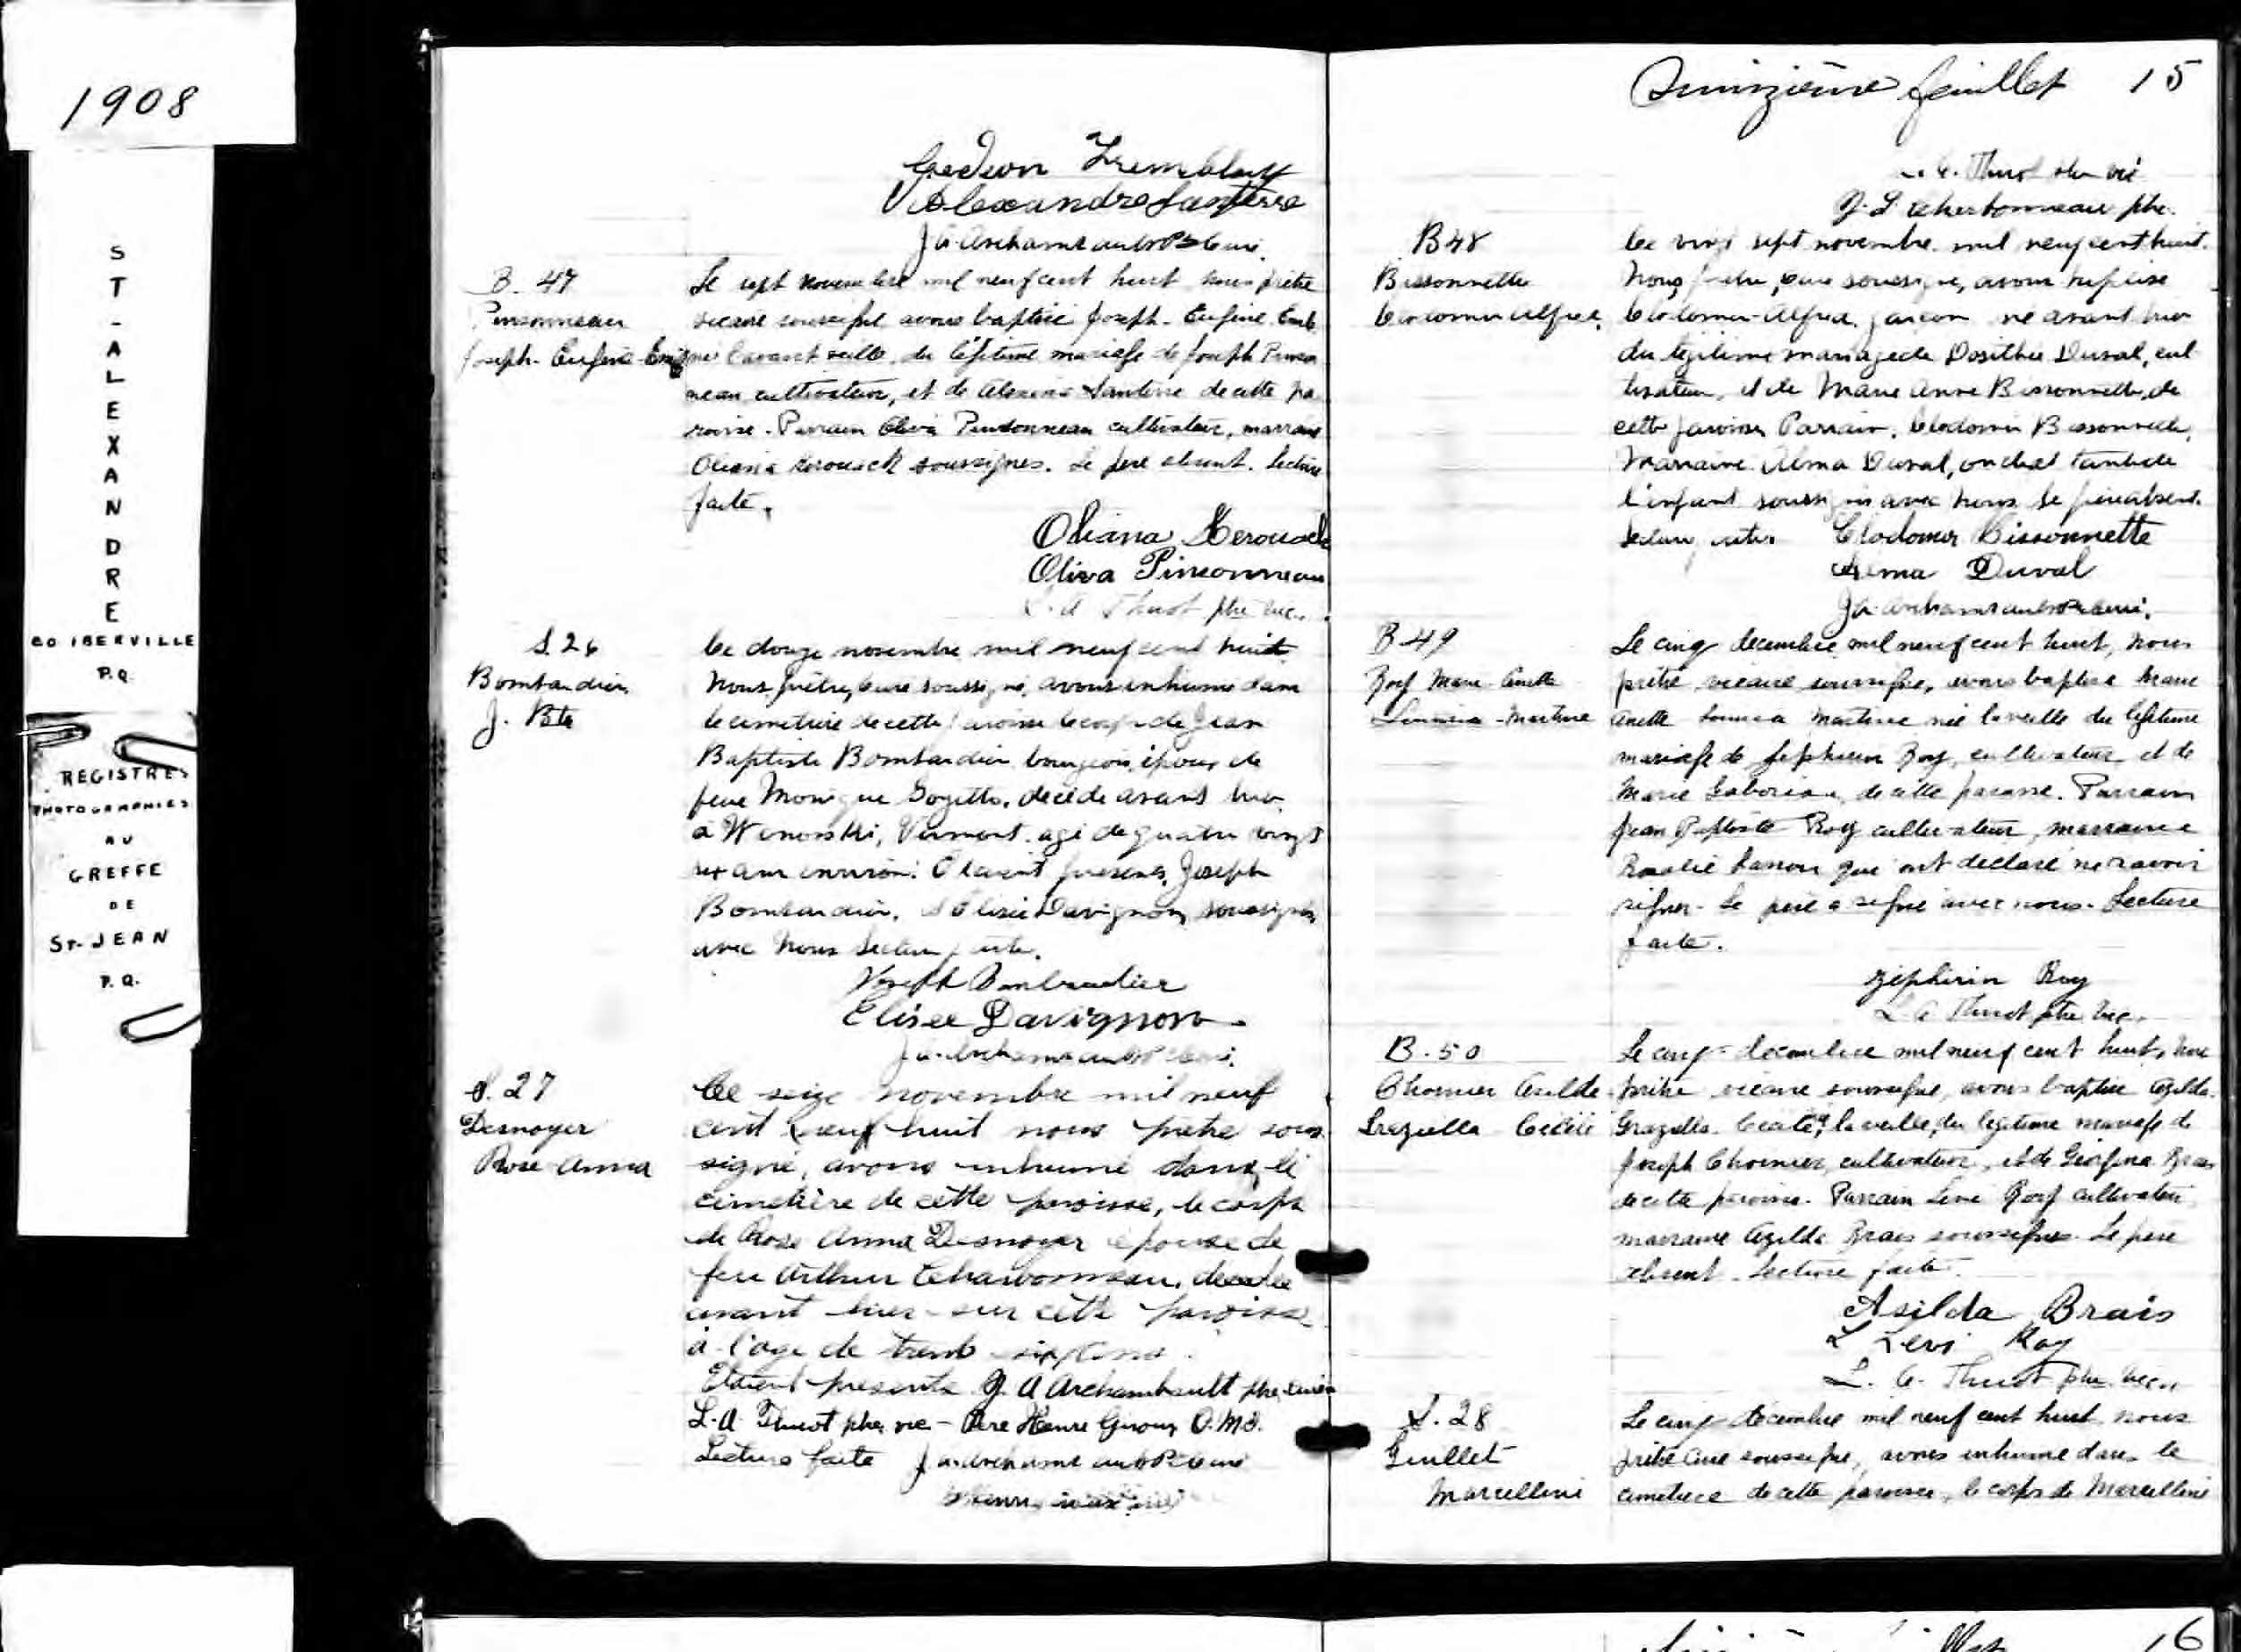 1908
ST-ALEXANDRE
CO IBERVILLE
P.Q.
REGISTRES
PHOTOGRAPHIES
AU
GREFFE
DE
ST-JEAN
P.Q.
Gédéon Tremblay
Alexandre Santerre
J. A. Archambault Ptre Curé.
B. 47
Pinsonneau
Joseph-Eugène
Le sept novembre mil neuf cent huit nous prêtre
vicaire soussigné avons baptisé Joseph-Eugène
l'avant veille, du légitime mariage de Joseph Pinson
neau cultivateur, et de Alexina Santerre de cette pa
roisse. Parrain Oliva Pinsonneau cultivateur, marraine
Oliana Kerouack soussignés. Le père absent. Lecture
faite.
Oliana Kerouack
Oliva Pinsonneau
L. A. Thuot ptre vic.
S. 26
Bombardier
J. Bte
Ce douze novembre mil neuf cent huit
Nous, prêtre, curé soussigné, avons inhumé dans
le cimetière de cette paroisse le corps de Jean
Baptiste Bombardier bourgeois, époux de
feue Monique Goyette, décédé avant hier
à Winooski, Vermont, agé de quatre vingt
six ans environ. Etaient présents, Joseph
Bombardier, et Elisée Davignon, soussignés
avec Nous Lecture faite.
Joseph Bombardier
Elisée Davignon
J. A. Archambault Ptre Curé.
S. 27
Desnoyer
Rose Anna
Ce seize novembre mil neuf
cent neuf huit nous prêtre sous
signé, avons inhumé dans le
cimetière de cette paroisse, le corps
de Rose Anna Desnoyer épouse de
feu Arthur Charbonneau, décédée
avant hier sur cette paroisse
à l'age de trente six ans.
Etaient présents J. A Archambault ptre, curé
L. A. Thuot ptre vic - Père Henri Giroux O.M.I.
Lecture faite J. A. Archambault Ptre Curé
Quinzième feuillet 15
L. A. Thuot ptre vic
J. L. Charbonneau ptre.
B 48
Bissonnette
Clodomir Alfred.
Ce vingt sept novembre mil neuf cent huit.
Nous, prêtre, curé soussigné, avons baptisé
Clodomir-Alfred, garçon né avant hier
du légitime mariage de Dosithée Duval, cul
tivateur, et de Marie Anne Bissonnette, de
cette paroisse Parrain, Clodomir Bissonnette,
Marraine Alma Duval, oncle et tante de
l'enfant soussignés avec nous. Le père absent.
Lecture faite. Clodomir Bissonnette
Alma Duval
J. A. Archambault Ptre Curé.
B 49
Roy Marie-Anette
Martine
Le cinq décembre mil neuf cent huit, nous
prêtre vicaire soussigné, avons baptisé Marie
Anette Martine née la veille du légitime
mariage de Zéphirin Roy, cultivateur et de
Marie Laboriau, de cette paroisse. Parrain
Jean Baptiste Roy cultivateur, marraine
Rosalie qui ont déclaré ne savoir
signer. Le père a signé avec nous. Lecture
faite.
Zéphirin Roy
L. A. Thuot ptre vic.
B. 50
Choinier Asilda
Graziella Cécile
Le cinq décembre mil neuf cent huit, nous
prêtre vicaire soussigné, avons baptisé Azilda
Graziella Cécile, la veille, du légitime mariage de
Joseph Choinier, cultivateur, et de Géorgina Brais
de cette paroisse. Parrain Levi Roy cultivateur
marraine Azilda Brais soussignés. Le père
absent. Lecture faite.
Asilda Brais
L Levi Roy
L. A. Thuot ptre. vic.
S. 28
Guillet
Marcelline
Le cinq décembre mil neuf cent huit, nous
prêtre curé soussigné, avons inhumé dans le
cimetière de cette paroisse, le corps de Marcelline
16